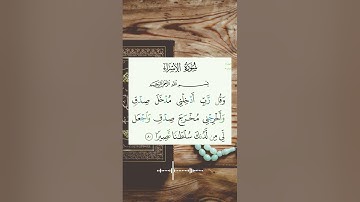 سُورَةُ الإِسْرَاءِ
بِسْمِ اللَّهِ الرَّحْمَٰنِ الرَّحِيمِ
وَقُل رَّبِّ أَدْخِلْنِي مُدْخَلَ صِدْقٍ
وَأَخْرِجْنِي مُخْرَجَ صِدْقٍ وَاجْعَل
لِّي مِن لَّدُنكَ سُلْطَانًا نَّصِيرًا ٨٠